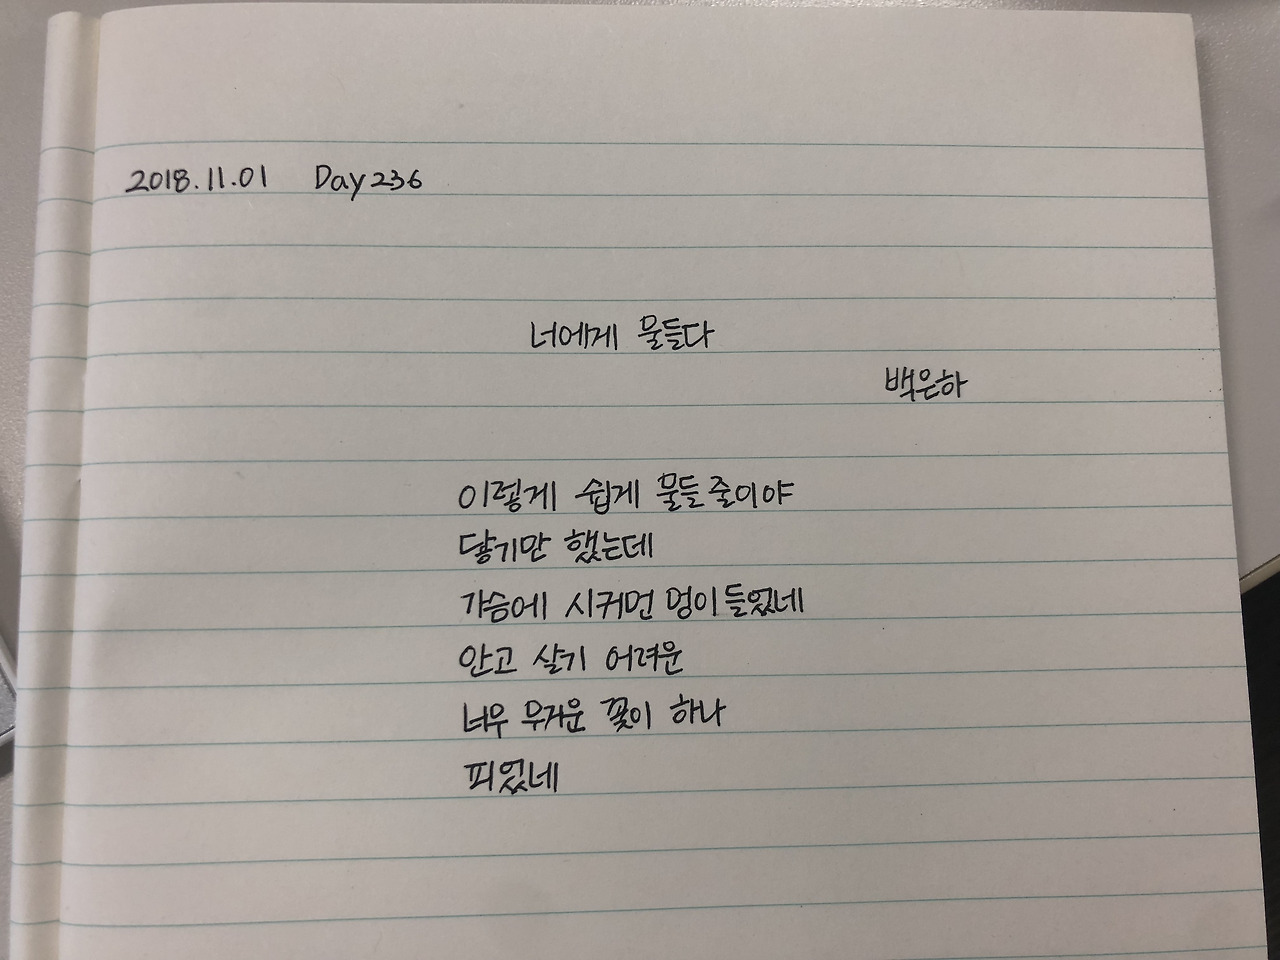 2018.11.01 Day236
너에게 물들다
백은하
이렇게 쉽게 물들 줄이야
닿기만 했는데
가슴에 시커먼 멍이 들었네
안고 살기 어려운
너무 무거운 꽃이 하나
피었네